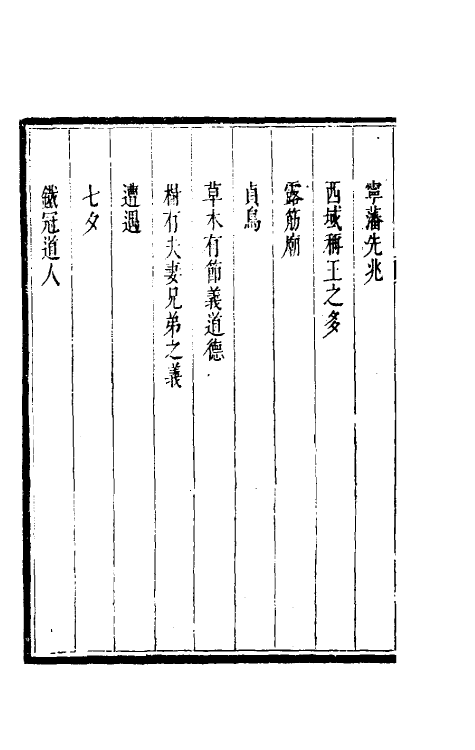 寧藩先兆
西域稱王之多
露筋廟
貞鳥
草木有節義道德
樹有夫妻兄弟之義
遭遇
七夕
鐵冠道人